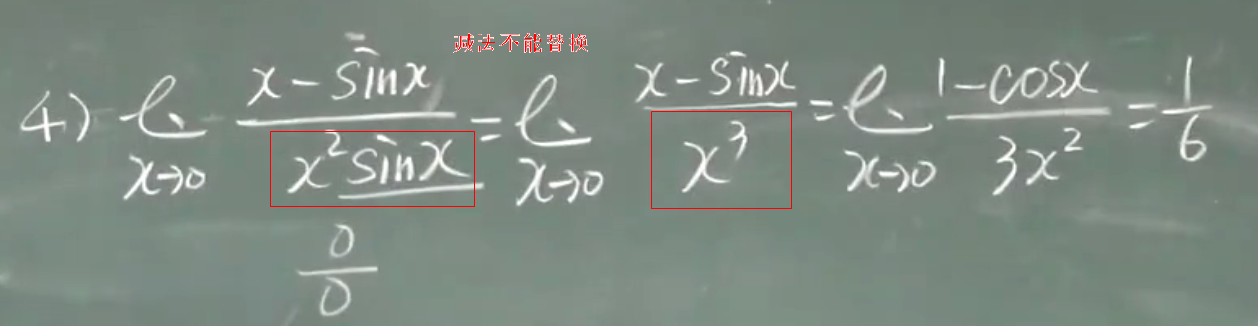 减法不能替换
4) l. x→0 x-sinx / x²sinx = l. x→0 x-sinx / x³ = l. x→0 1-cosx / 3x² = 1/6
0/0